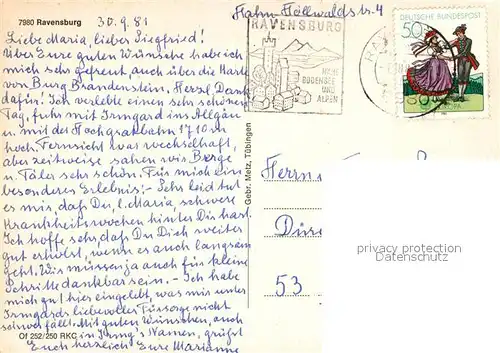 7980 Ravensburg
30.9.81
Liebe Maria, lieber Siegfried!
Über Eure guten Wünsche habe ich
mich sehr gefreut, auch über die Karte
von Burg Brandenstein, Herzl. Dank
dafür! Ich verlebte einen sehr schönen
Tag, fuhr mit Irmgard ins Allgäu
u. mit der Hochgratbahn 1710 m
hoch. Fernsicht war wechselhaft,
aber zeitweise sahen wir Berge
u. Täler sehr schön. Für mich ein
besonderes Erlebnis! - Sehr leid tut
es mir, daß Du, l. Maria, schwere
Krankheitswochen hinter Dir hast.
Ich hoffe sehr, daß Du Dich weiter
gut erholst, wenn es auch langsam
geht. Wir müssen ja auch für kleine
Schritte dankbar sein. - Ich habe
mich gut hier eingelebt, was mir unter
Irmgards liebevoller Fürsorge nicht
schwer fällt. Mit guten Wünschen, auch
in Irmg's Namen, grüßt
Euch herzlich Eure Marianne
Of 252/250 RKC
Gebr. Metz, Tübingen
RAVENSBURG
NAHE
BODENSEE
UND
ALPEN
DEUTSCHE BUNDESPOST
50
Herrn
Düsse
53
privacy protection
Ansichtskarten-Center.de